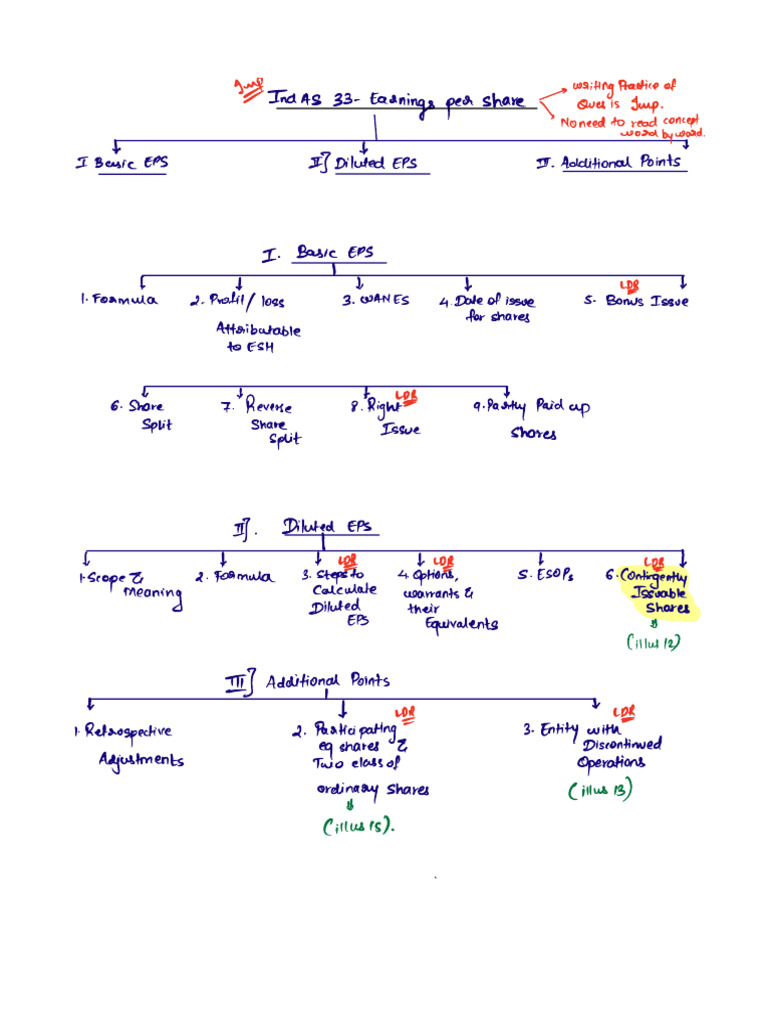 Imp
Ind AS 33- Earnings per share
writing Practice of
Ques is Imp.
No need to read concept
word by word.
I Basic EPS
II] Diluted EPS
III. Additional Points
I. Basic EPS
1. Formula
2. Profit/loss
Attributable
to ESH
3. WANES
4. Date of issue
for shares
LDR
5. Bonus Issue
6. Share
Split
7. Reverse
Share
Split
LDR
8. Right
Issue
9. Partly Paid up
Shares
II]. Diluted EPS
1. Scope &
Meaning
2. Formula
LDR
3. Steps to
Calculate
Diluted
EPS
LDR
4. Options,
warrants &
their
Equivalents
5. ESOPs
LDR
6. Contingently
Issuable
Shares
(illus 12)
III] Additional Points
1. Retrospective
Adjustments
LDR
2. Participating
eq shares &
Two class of
ordinary shares
(illus 15).
LDR
3. Entity with
Discontinued
Operations
(illus 13)